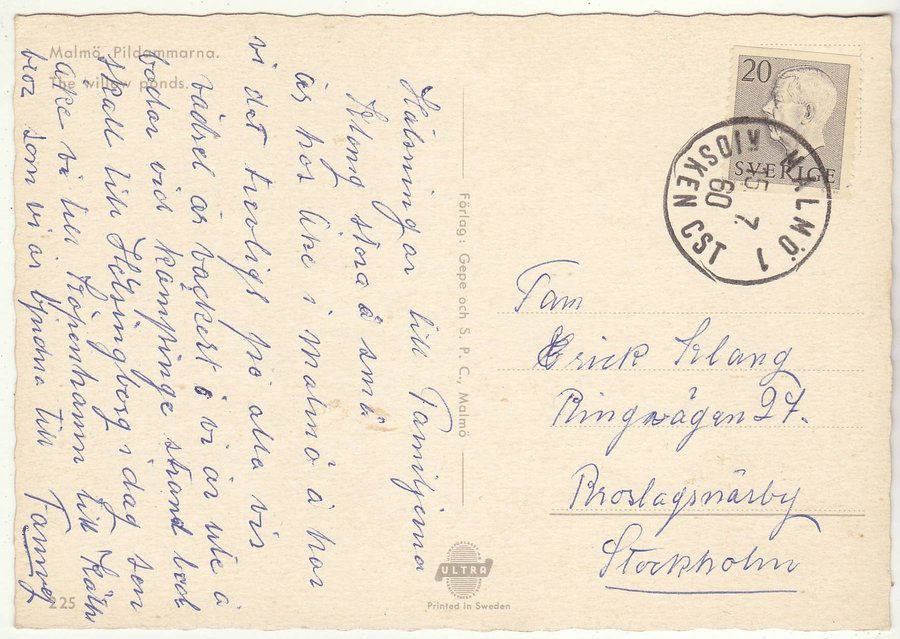 Malmö, Pildammarna.
The willow ponds.
Hälsningar till Familjerna
Klang stora å små
är hos Åke i Malmö å har
vi det trevligt på alla vis
vädret är vackert å vi är ute å
badar vid kämpinge strand
skall till Hälsingberg idag sen
åke vi till Köpenhamn till
som vi är bjudna till
225
Förlag: Gepe och S. P. C., Malmö
ULTRA
Printed in Sweden
20
SVERIGE
MALMÖ 1
KIOSKEN CST
5. 7.
60
Fam
Erick Klang
Ringvägen 27.
Roslagsnäsby
Stockholm